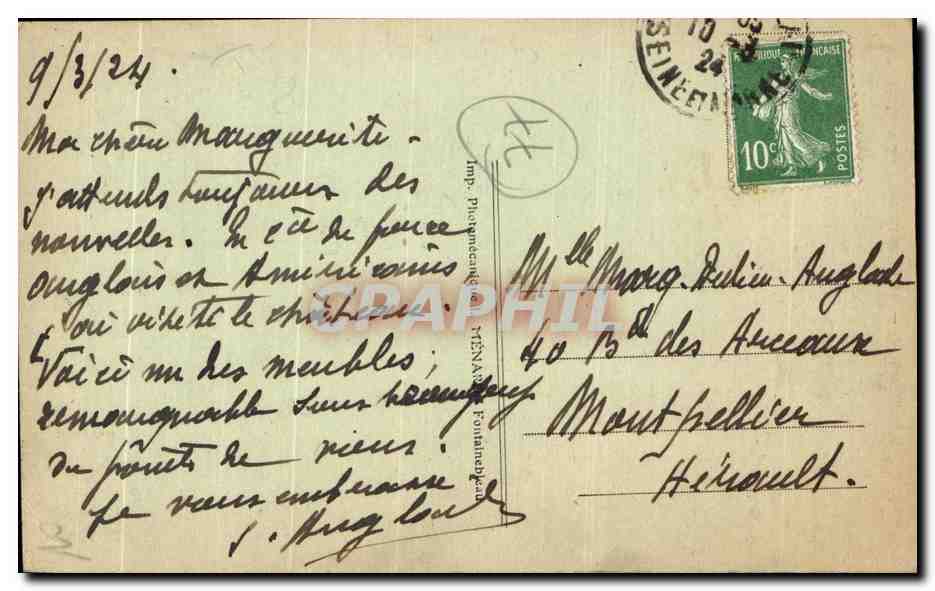 9/3/24.
Ma chère Marguerite -
J'attends toujours des
nouvelles. En été de
anglais et Américains
ai visité le château.
Voici un des meubles,
remarquable sous beaucoup
de points de vues.
Je vous embrasse
J. Anglade
Imp. Photomécanique MÉNARD Fontainebleau
10
24
SEINE ET MARNE
REPUBLIQUE FRANÇAISE
10c
POSTES
Mlle Marg. Anglade
40 Bd des Arceaux
Montpellier
Hérault.
CPAPHIL